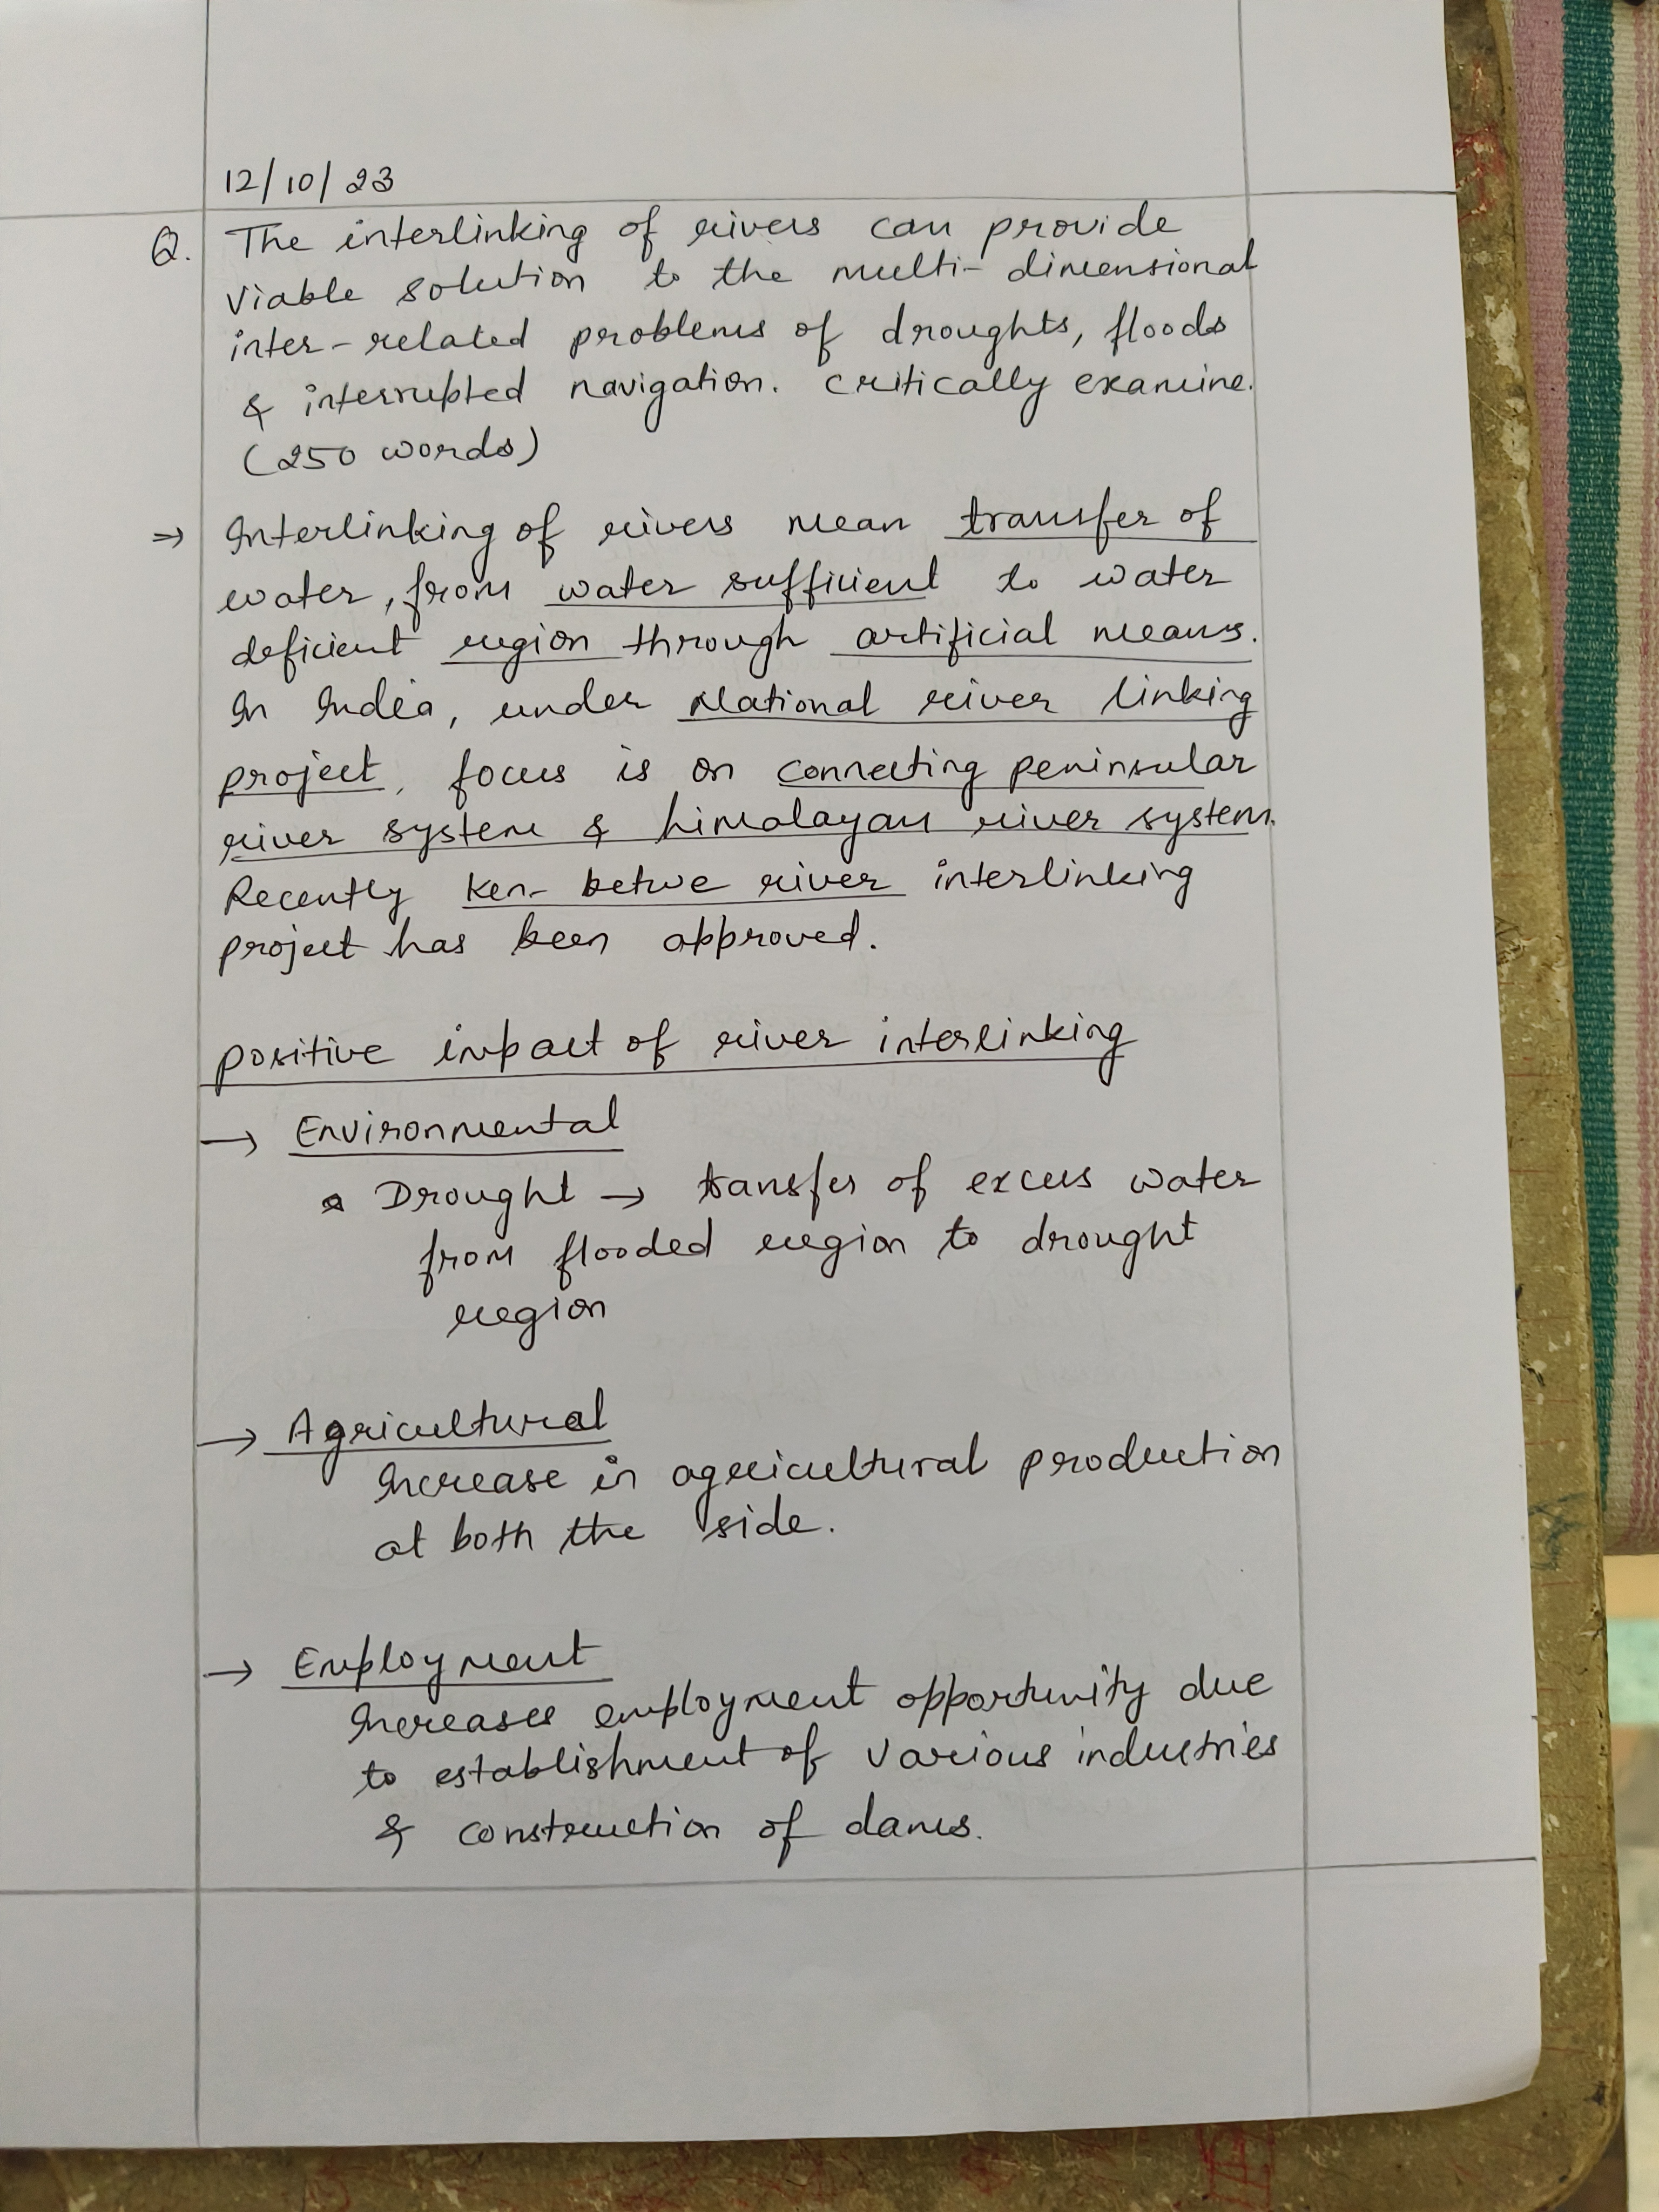 12/10/23
Q. The interlinking of rivers can provide
viable solution to the multi-dimensional
inter-related problems of droughts, floods
& interrupted navigation. critically examine.
(250 words)
⇒ Interlinking of rivers mean transfer of
water, from water sufficient to water
deficient region through artificial means.
In India, under National river linking
project, focus is on connecting peninsular
river system & himalayan river system.
Recently Ken-betwe river interlinking
project has been approved.
positive impact of river interlinking
→ Environmental
Drought → transfer of excess water
from flooded region to drought
region
→ Agricultural
Increase in agricultural production
at both the side.
→ Employment
Increases employment opportunity due
to establishment of various industries
& construction of dams.